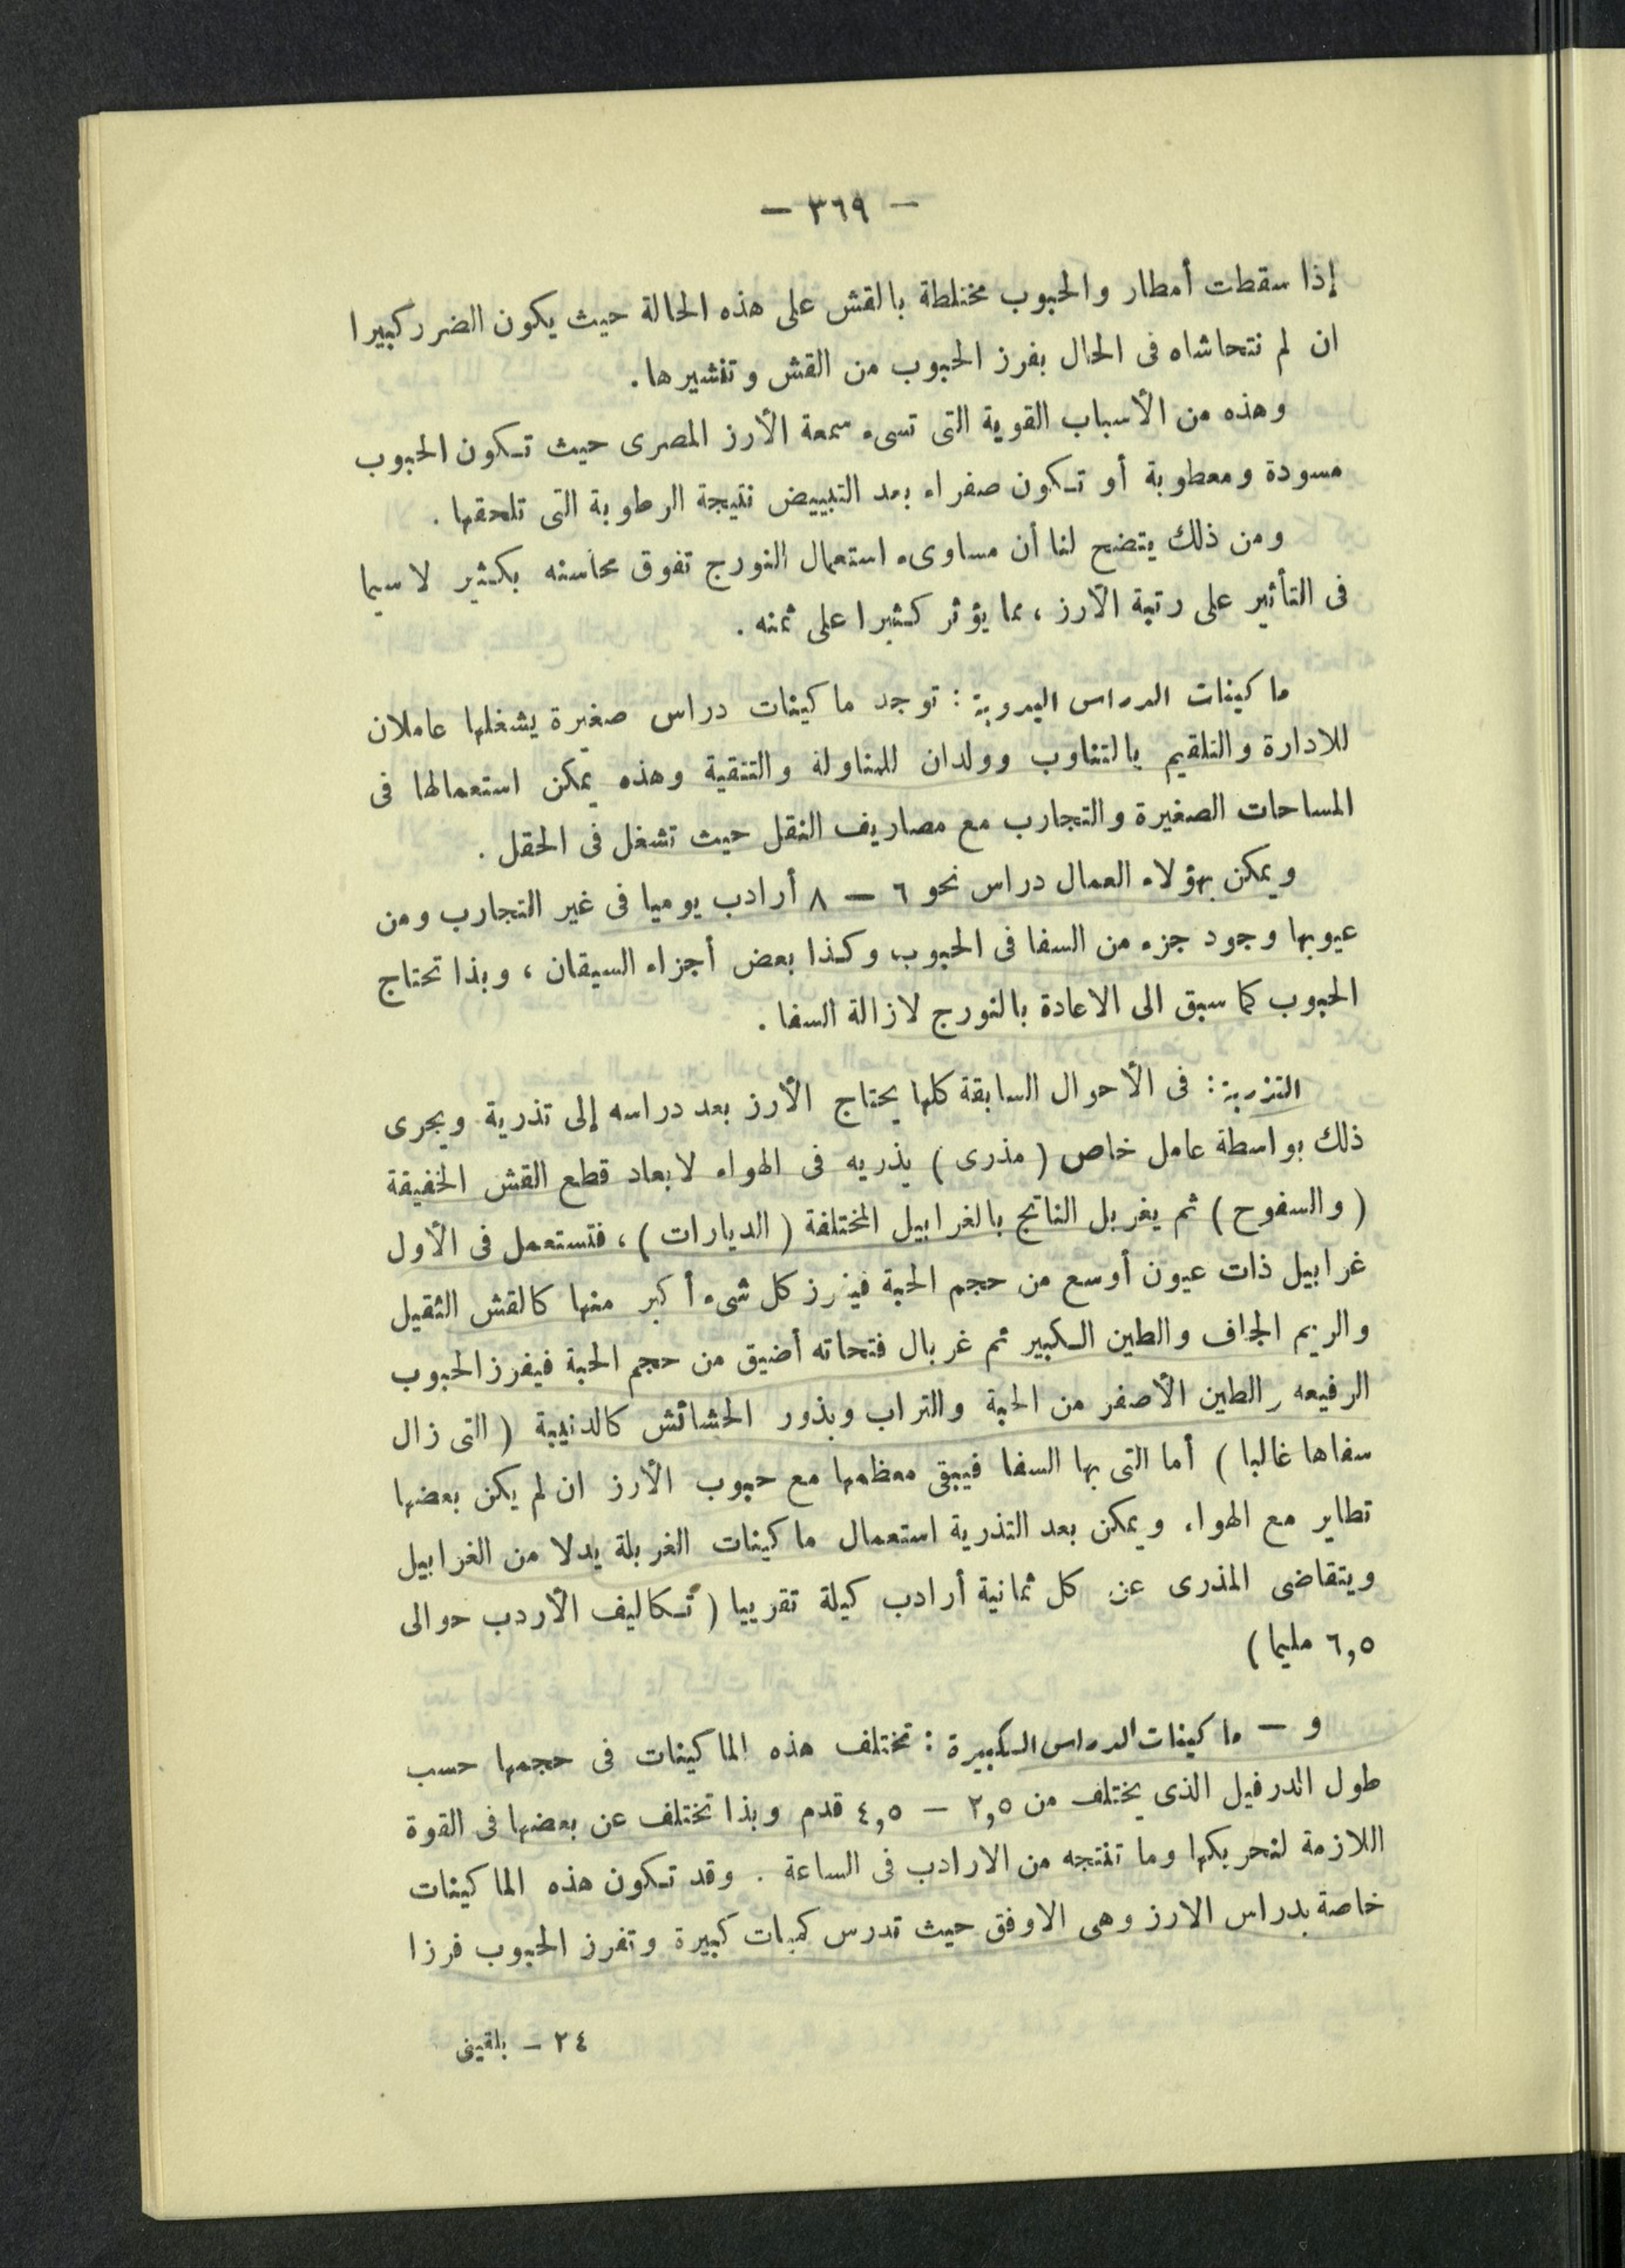 — ٣٦٩ —
إذا سقطت أمطار والحبوب مختلطة بالقش على هذه الحالة حيث يكون الضرر كبيرا
ان لم نتحاشاه فى الحال بفرز الحبوب من القش وتنشيرها .
وهذه من الأسباب القوية التى تسىء سمعة الأرز المصرى حيث تكون الحبوب
مسودة ومعطوبة أو تكون صفراء بعد التبييض نتيجة الرطوبة التى تلحقها .
ومن ذلك يتضح لنا أن مساوىء استعمال النورج تفوق محاسنه بكثير لا سيما
فى التأثير على رتبة الأرز ، مما يؤثر كثيرا على ثمنه .
ماكينات الدراس اليدوية : توجد ماكينات دراس صغيرة يشغلها عاملان
للادارة والتلقيم بالتناوب وولدان للمناولة والتنقية وهذه يمكن استعمالها فى
المساحات الصغيرة والتجارب مع مصاريف النقل حيث تشغل فى الحقل .
ويمكن بهؤلاء العمال دراس نحو ٦ — ٨ أرادب يوميا فى غير التجارب ومن
عيوبها وجود جزء من السفا فى الحبوب وكذا بعض أجزاء السيقان ، وبذا تحتاج
الحبوب كما سبق الى الاعادة بالنورج لازالة السفا .
التذرية : فى الأحوال السابقة كلها يحتاج الأرز بعد دراسه إلى تذرية ويجرى
ذلك بواسطة عامل خاص ( مذرى ) يذريه فى الهواء لابعاد قطع القش الخفيفة
( والسفوح ) ثم يغربل الناتج بالغرابيل المختلفة ( الديارات ) ، فتستعمل فى الأول
غرابيل ذات عيون أوسع من حجم الحبة فيفرز كل شىء أكبر منها كالقش الثقيل
والريم الجاف والطين الكبير ثم غربال فتحاته أضيق من حجم الحبة فيفرز الحبوب
الرفيعه والطين الأصغر من الحبة والتراب وبذور الحشائش كالدنيبة ( التى زال
سفاها غالبا ) أما التى بها السفا فيبقى معظمها مع حبوب الأرز ان لم يكن بعضها
تطاير مع الهواء ويمكن بعد التذرية استعمال ماكينات الغربلة بدلا من الغرابيل
ويتقاضى المذرى عن كل ثمانية أرادب كيلة تقريبا ( تكاليف الأردب حوالى
٦,٥ مليما )
و — ماكينات الدراس الكبيرة : تختلف هذه الماكينات فى حجمها حسب
طول الدرفيل الذى يختلف من ٢,٥ — ٤,٥ قدم وبذا تختلف عن بعضها فى القوة
اللازمة لتحريكها وما تنتجه من الارادب فى الساعة . وقد تكون هذه الماكينات
خاصة بدراس الارز وهى الاوفق حيث تدرس كميات كبيرة وتفرز الحبوب فرزا
٢٤ — بلقينى